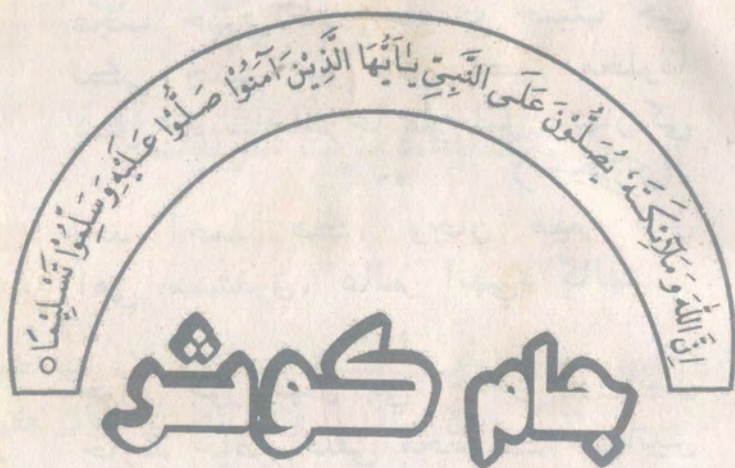 اِنَّ اللّٰهَ وَ مَلَآئِكَتَهٗ يُصَلُّوْنَ عَلَى النَّبِيِّ يٰاَيُّهَا الَّذِيْنَ اٰمَنُوْا صَلُّوْا عَلَيْهِ وَ سَلِّمُوْا تَسْلِيْمًا ○
جام كوثر